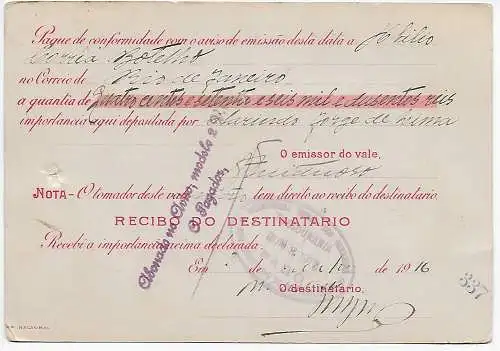 Pague de conformidade com o aviso de emissão desta data a
Corrêa Botelho
no Correio de Rio de Janeiro
a quantia de Quatro centos e setenta e seis mil e dusentos réis
importancia aqui depositada por Clarindo Jorge de Lima
O emissor do vale,
NOTA - O tomador deste vale tem direito ao recibo do destinatario.
RECIBO DO DESTINATARIO
Recebi a importancia acima declarada.
Em de de 1916
O destinatário,
Abonado no Livro, modelo 2
O Pagador,
337
NACIONAL